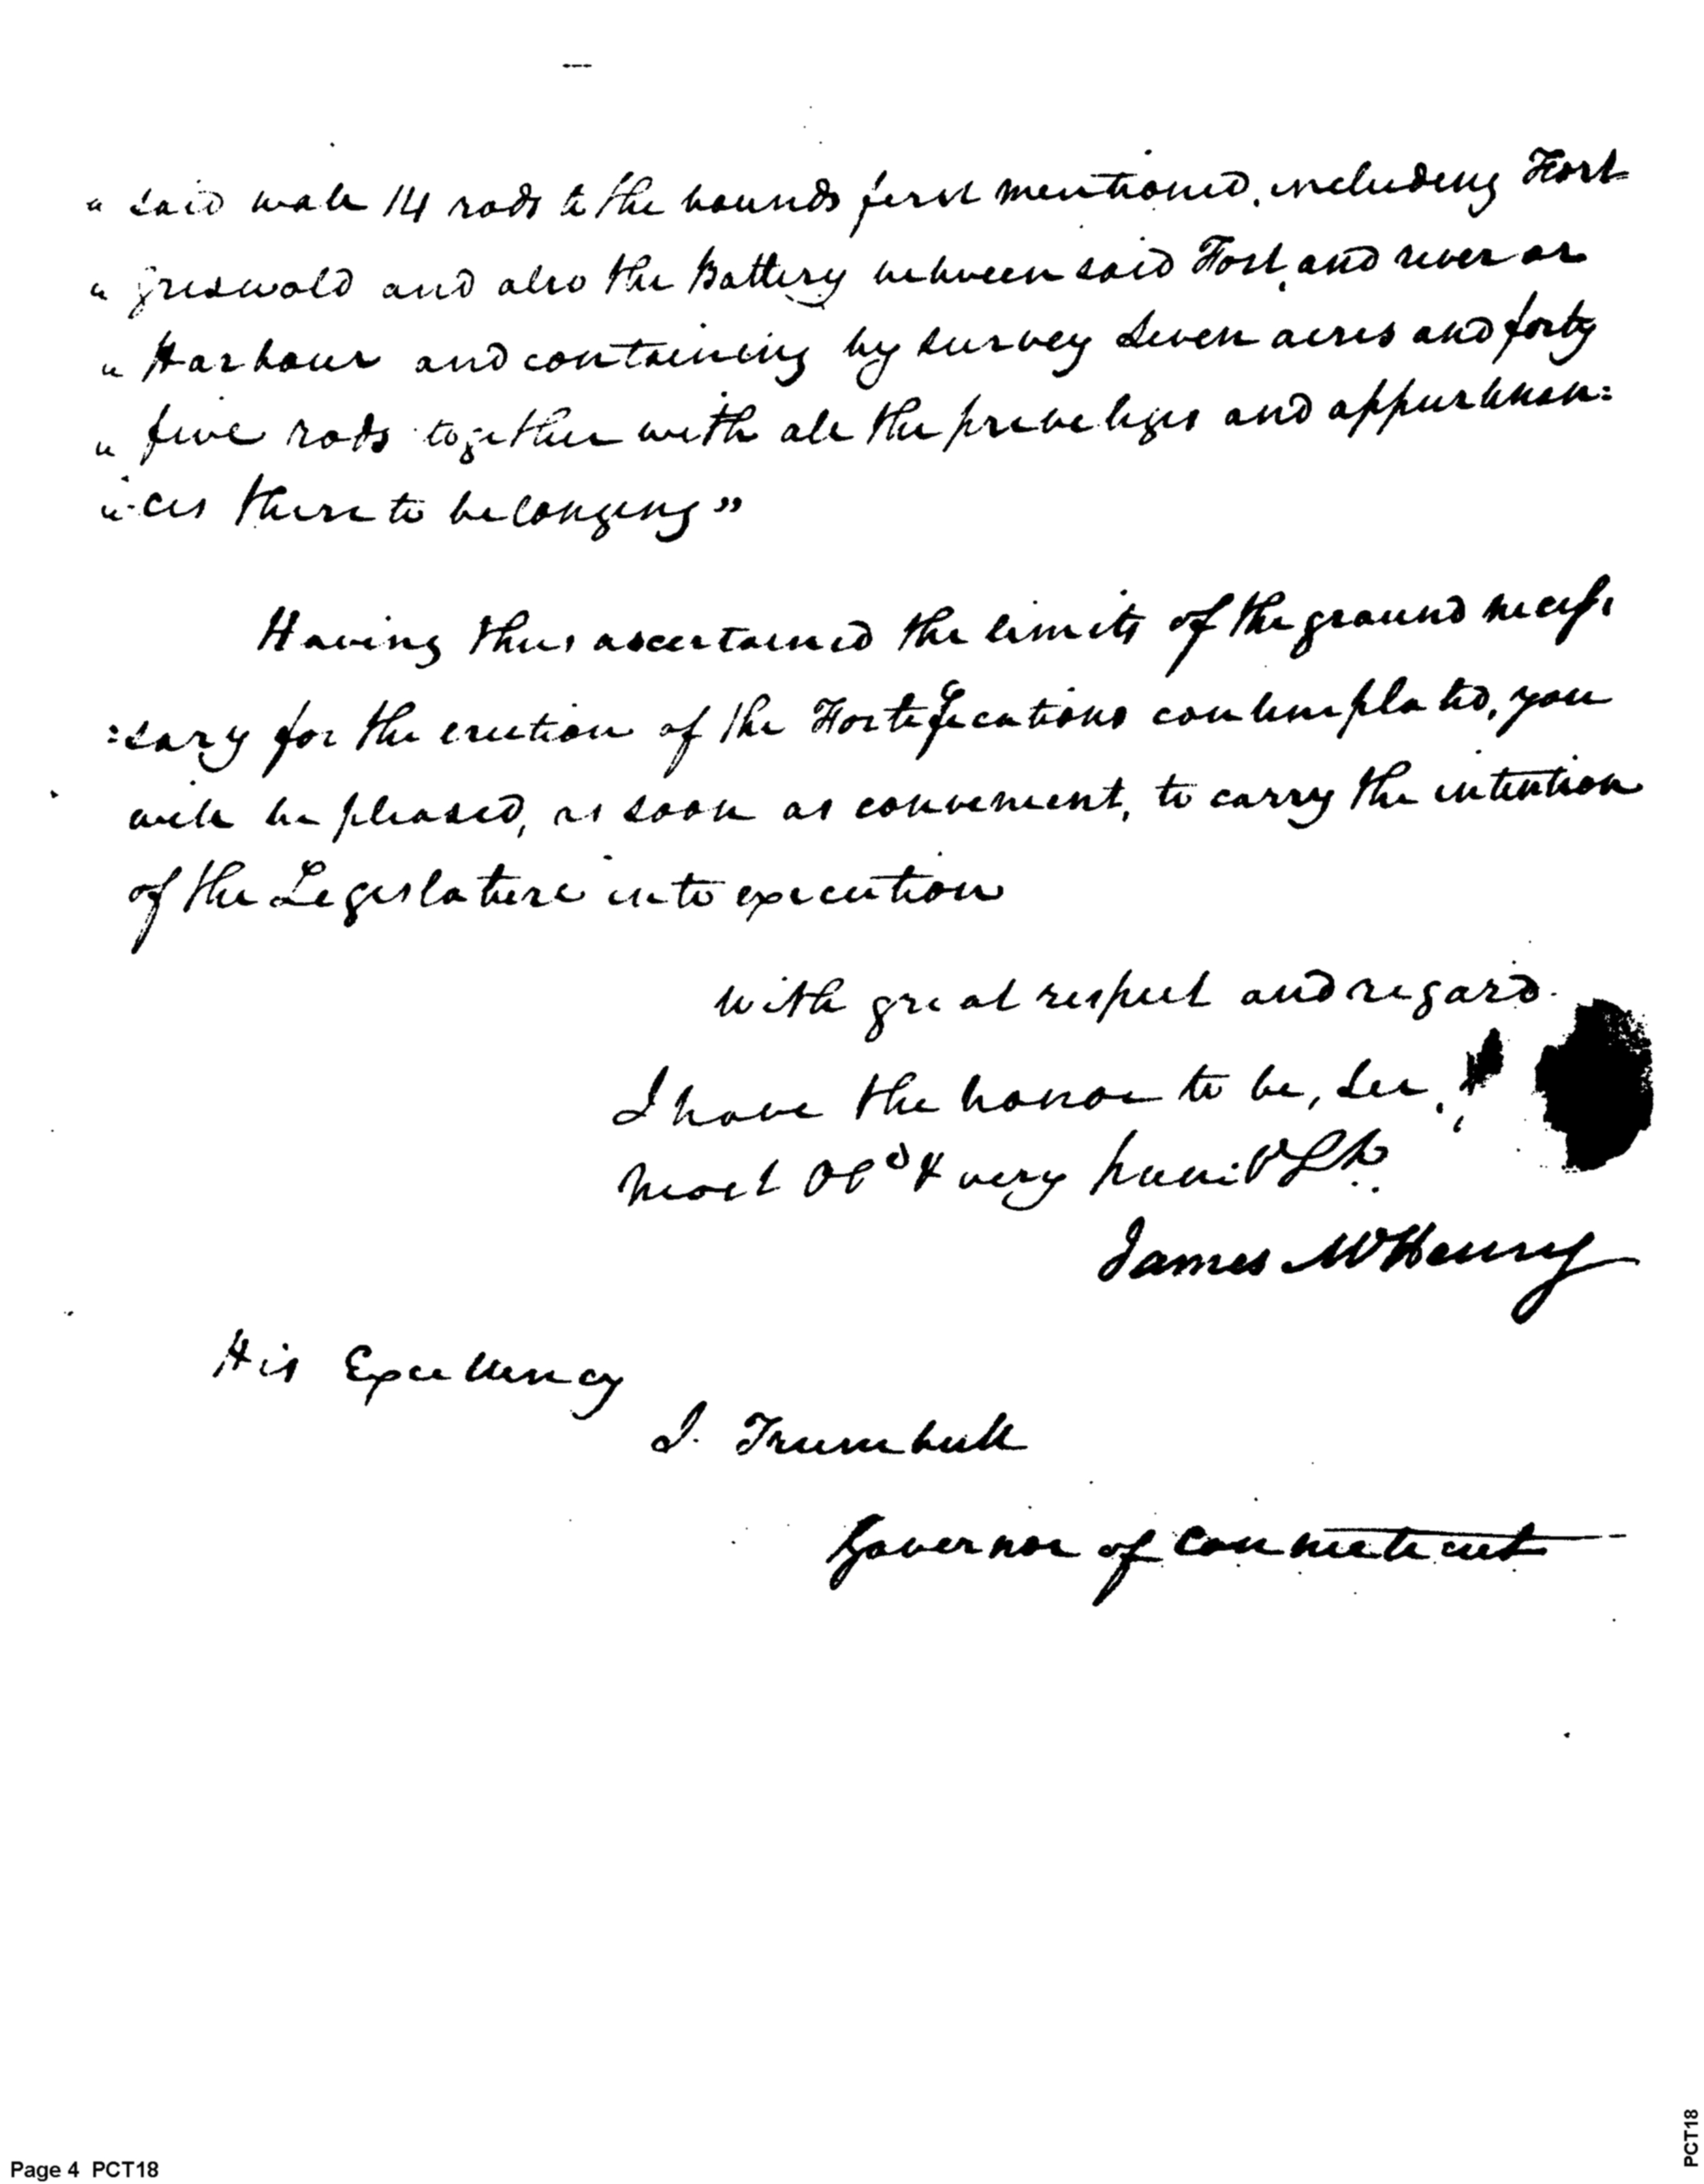 " said wall 14 rods to the bounds first mentioned, including Fort
" Griswold and also the Battery between said Fort and river or
" Harbour and containing by survey seven acres and forty
" five rods together with all the priveliges and appurtenan:
" ces thereto belonging"
Having thus ascertained the limits of the ground neces
:sary for the erection of the Fortifications contemplated, you
will be pleased, as soon as convenient, to carry the intention
of the Legislature into execution
With great respect and regard.
I have the honor to be, Sir,
most Obd & very humb
James McHenry
His Excellency
J. Trumbull
Governor of Connecticut
Page 4 PCT18
PCT18